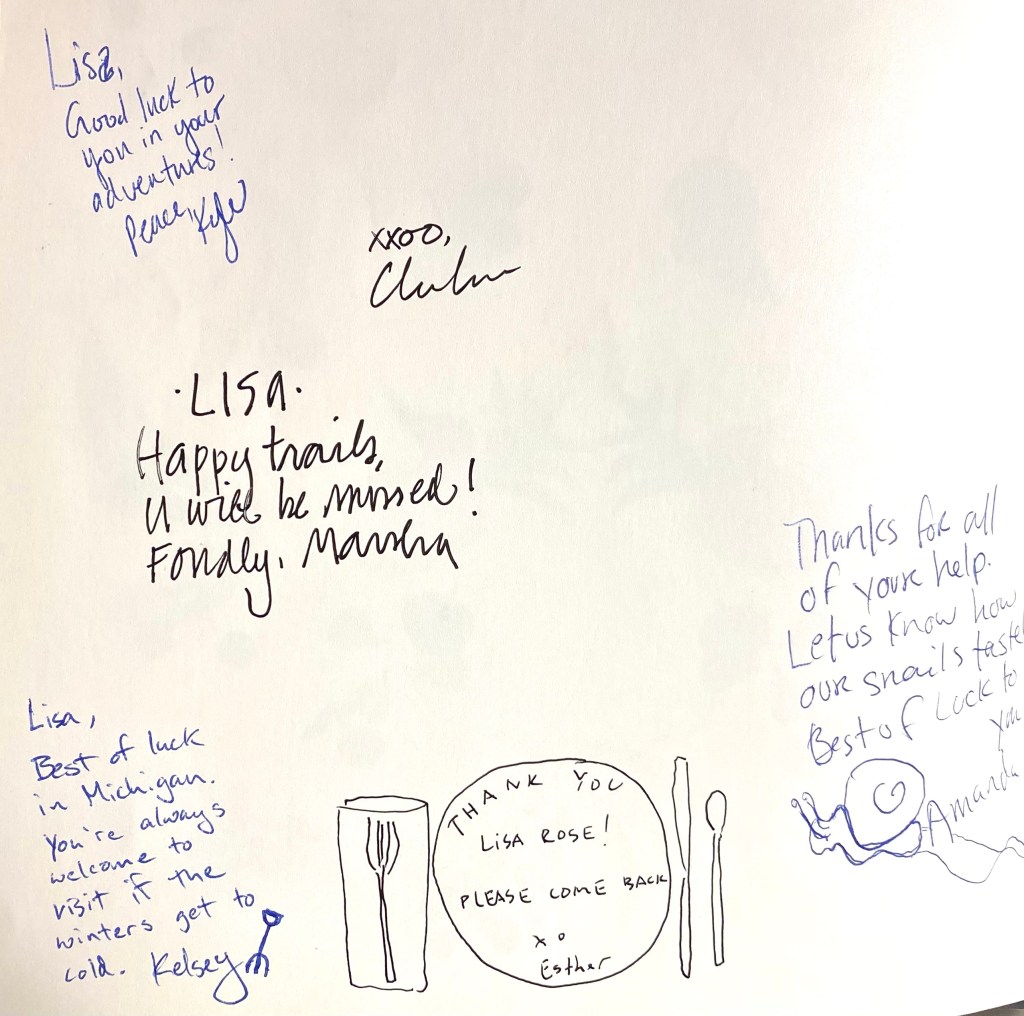 Lisa,
Good luck to
you in your
adventures!
Peace, Kyle
xxoo,
·LISA·
Happy trails,
U will be missed!
Fondly, Marsha
Thanks for all
of your help.
Let us know how
our snails taste!
Best of Luck to
you
Amanda
Lisa,
Best of luck
in Michigan.
You're always
welcome to
visit if the
winters get to
cold. Kelsey
THANK YOU
LISA ROSE!
PLEASE COME BACK
xo
Esther